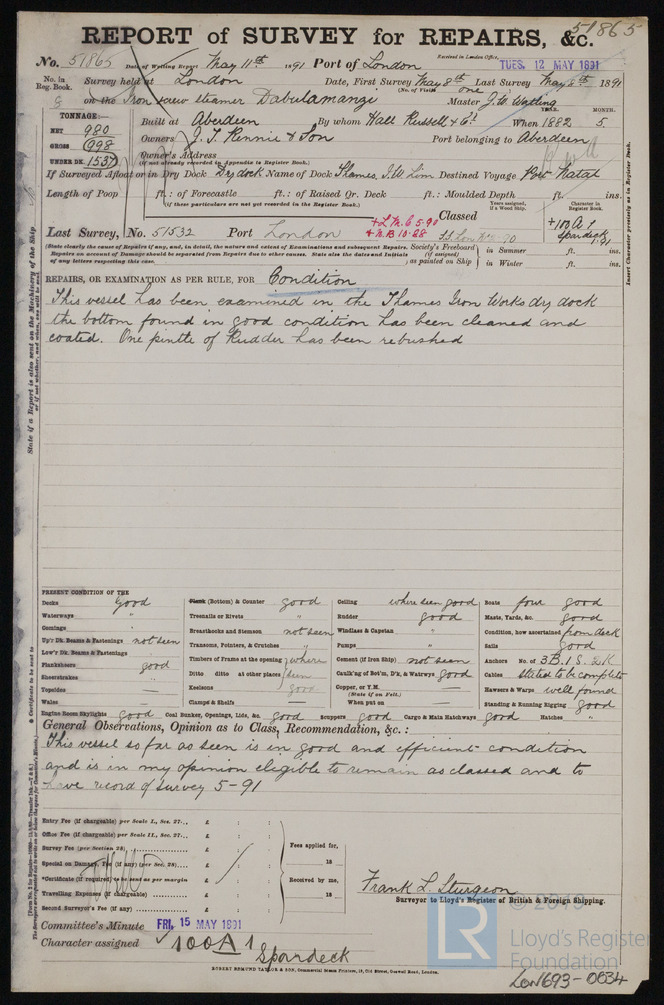 51865
REPORT of SURVEY for REPAIRS, &c.
No. 51865 Date of Writing Report May 11th 1891 Port of London Received in London Office, TUES. 12 MAY 1891
No. in Reg. Book. Survey held at London Date, First Survey May 8th Last Survey May 8th 1891
(No. of Visits one)
on the Iron screw steamer Dabulamanzi Master J. W. Watling
TONNAGE:— YEAR. MONTH.
NET 980 Built at Aberdeen By whom Hall Russell & Co. When 1882 5.
GROSS 998 Owners J. T. Rennie & Son Port belonging to Aberdeen
UNDER DK. 1537 Owner's Address
(if not already recorded in Appendix to Register Book.)
If Surveyed Afloat or in Dry Dock Dry dock Name of Dock Thames. I. W. Lim Destined Voyage Port Natal
Length of Poop ft.: of Forecastle ft.: of Raised Qr. Deck ft.: Moulded Depth ft. ins.
(if these particulars are not yet recorded in the Register Book.)
Years assigned, if a Wood Ship. Character in Register Book.
Classed
Last Survey, No. 51532 Port London + L.M.C 5.90 + N.B 10.88 +100A1 spardeck 1.91
(State clearly the cause of Repairs if any, and, in detail, the nature and extent of Examinations and subsequent Repairs.
Repairs on account of Damage should be separated from Repairs due to other causes. State also the dates and Initials
of any letters respecting this case.
Society's Freeboard (if assigned) as painted on Ship in Summer ft. ins.
in Winter ft. ins.
Insert Character precisely as in Register Book.
REPAIRS, OR EXAMINATION AS PER RULE, FOR Condition
This vessel has been examined in the Thames Iron Works dry dock
the bottom found in good condition has been cleaned and
coated. One pintle of Rudder has been rebushed
PRESENT CONDITION OF THE
Decks Good
Waterways "
Comings "
Up'r Dk. Beams & Fastenings not seen
Low'r Dk. Beams & Fastenings
Planksheers good
Sheerstrakes
Topsides —
Wales —
Engine Room Skylights good
Plank (Bottom) & Counter good
Treenails or Rivets "
Breasthooks and Stemson not seen
Transoms, Pointers, & Crutches "
Timbers of Frame at the opening where
Ditto ditto at other places seen
Keelsons good
Clamps & Shelfs —
Coal Bunker, Openings, Lids, &c. good
Scuppers good
Ceiling where seen good
Rudder good
Windlass & Capstan "
Pumps "
Cement (if Iron Ship) not seen
Caulk'g of Bot'm, D'k, & Watrwys good
Copper, or Y.M. —
(State if on Felt.)
When put on —
Cargo & Main Hatchways good
Boats four good
Masts, Yards, &c. good
Condition, how ascertained from deck
Sails good
Anchors No. of 3B. 1S. 2K
Cables stated to be complete
Hawsers & Warps well found
Standing & Running Rigging good
Hatches "
General Observations, Opinion as to Class, Recommendation, &c.:
This vessel so far as seen is in good and efficient condition
and is in my opinion eligible to remain as classed and to
have record of survey 5-91
Entry Fee (if chargeable) per Scale I., Sec. 27... £ : :
Office Fee (if chargeable) per Scale II., Sec. 27... £ : :
Survey Fee (per Section 28) £ : :
Special on Damage, Fee (if any) (per Sec. 28) £ : :
*Certificate (if required) as sent as per margin £ : :
Travelling Expenses (if chargeable) £ : :
Second Surveyor's Fee (if any) £ : :
Fees applied for,
18
Received by me,
18
Frank L. Sturgeon
Surveyor to Lloyd's Register of British & Foreign Shipping.
Committee's Minute FRI. 15 MAY 1891
Character assigned 100A1
Spardeck
ROBERT EDMUND TAYLOR & SON, Commercial Steam Printers, 19, Old Street, Goswell Road, London.
LR
Lloyd's Register
Foundation
LON693-0034